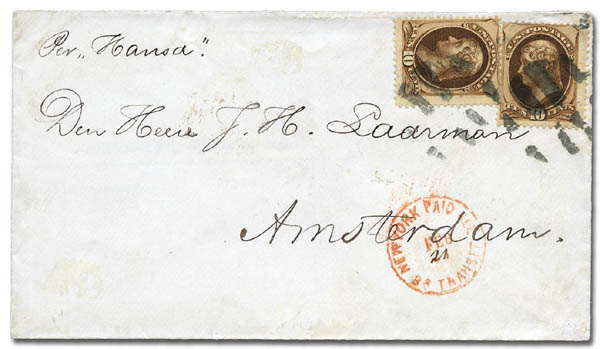 Per „Hansa".
Den Heer J. H. Laarman
Amsterdam.
NEW YORK PAID ALL
FEB
21
BR TRANSIT
10
10